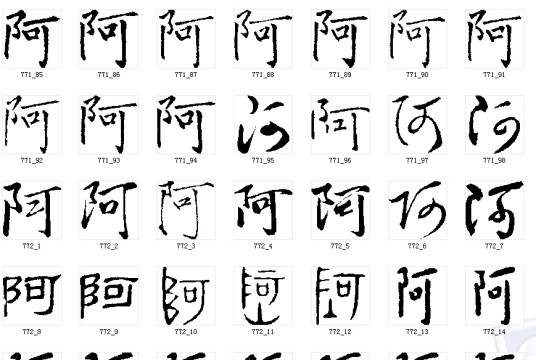 阿 阿 阿 阿 阿 阿 阿
771_85 771_86 771_87 771_88 771_89 771_90 771_91
阿 阿 阿 阿 阿 阿 阿
771_92 771_93 771_94 771_95 771_96 771_97 771_98
阿 阿 阿 阿 阿 阿 阿
772_1 772_2 772_3 772_4 772_5 772_6 772_7
阿 阿 阿 阿 阿 阿 阿
772_8 772_9 772_10 772_11 772_12 772_13 772_14